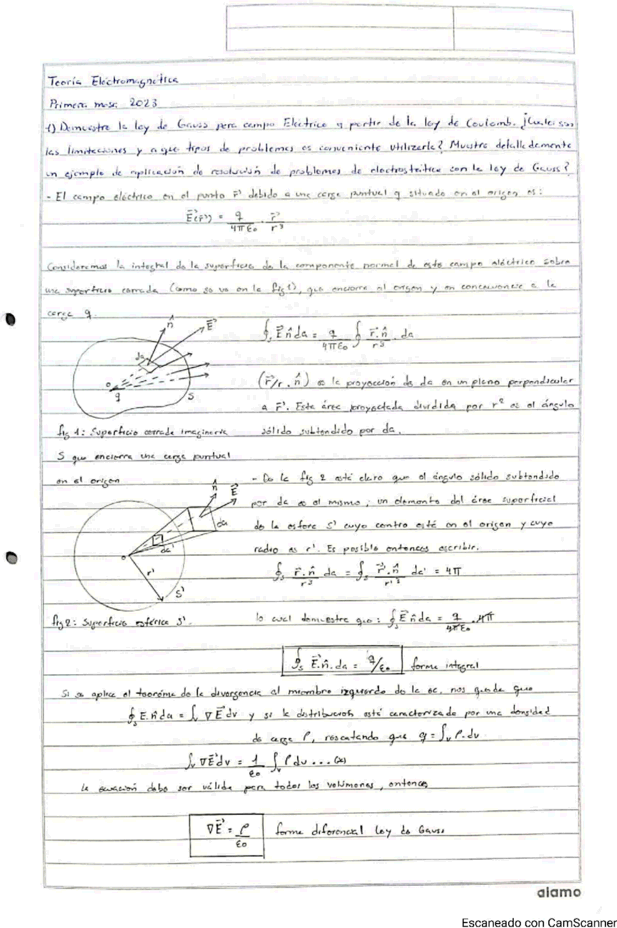 Teoría Electromagnética
Primera mesa 2023
1) Demuestre la ley de Gauss para campo Eléctrico a partir de la ley de Coulomb. ¿Cuales son
las limitaciones y a que tipos de problemas es conveniente utilizarla? Muestre detalladamente
un ejemplo de aplicación de resolución de problemas de electrostática con la ley de Gauss?
- El campo eléctrico en el punto r⃗ debido a una carga puntual q situado en el origen es:
E⃗(r⃗) = q/4πε₀ . r⃗/r³
Consideremos la integral de la superficie de la componente normal de este campo eléctrico sobre
una superficie cerrada (como se ve en la fig 1), que encierre al origen y en consecuencia a la
carga q.
n̂ E⃗
∮ₛ E⃗ n̂ da = q/4πε₀ ∮ r⃗.n̂/r³ . da
da
o
q
S
(r⃗/r . n̂) es la proyección de da en un plano perpendicular
a r⃗. Este área proyectada dividida por r² es el ángulo
sólido subtendido por da.
fig 1: Superficie cerrada imaginaria
S que encierra una carga puntual
en el origen
- De la fig 2 está claro que el ángulo sólido subtendido
por da es el mismo, un elemento del área superficial
de la esfera S' cuyo centro está en el origen y cuyo
radio es r'. Es posible entonces escribir.
n̂ E⃗
da
da'
o
r'
S'
∮ₛ r⃗.n̂/r³ da = ∮ₛ' r⃗'.n̂/r'³ da' = 4π
fig 2: Superficie esférica S'.
lo cual demuestra que: ∮ₛ E⃗ n̂ da = q/4πε₀ . 4π
∮ₛ E⃗.n̂. da = q/ε₀ forma integral
Si se aplica el teorema de la divergencia al miembro izquierdo de la ec. nos queda que
∮ₛ E.n̂ da = ∫ᵥ ∇E⃗ dv y si la distribución está caracterizada por una densidad
de carga ρ, rescatando que q = ∫ᵥ ρ.dv
∫ᵥ ∇E⃗ dv = 1/ε₀ ∫ᵥ ρ dv ...
la ecuación debe ser válida para todos los volúmenes, entonces
∇E⃗ = ρ/ε₀ forma diferencial ley de Gauss
alamo
Escaneado con CamScanner